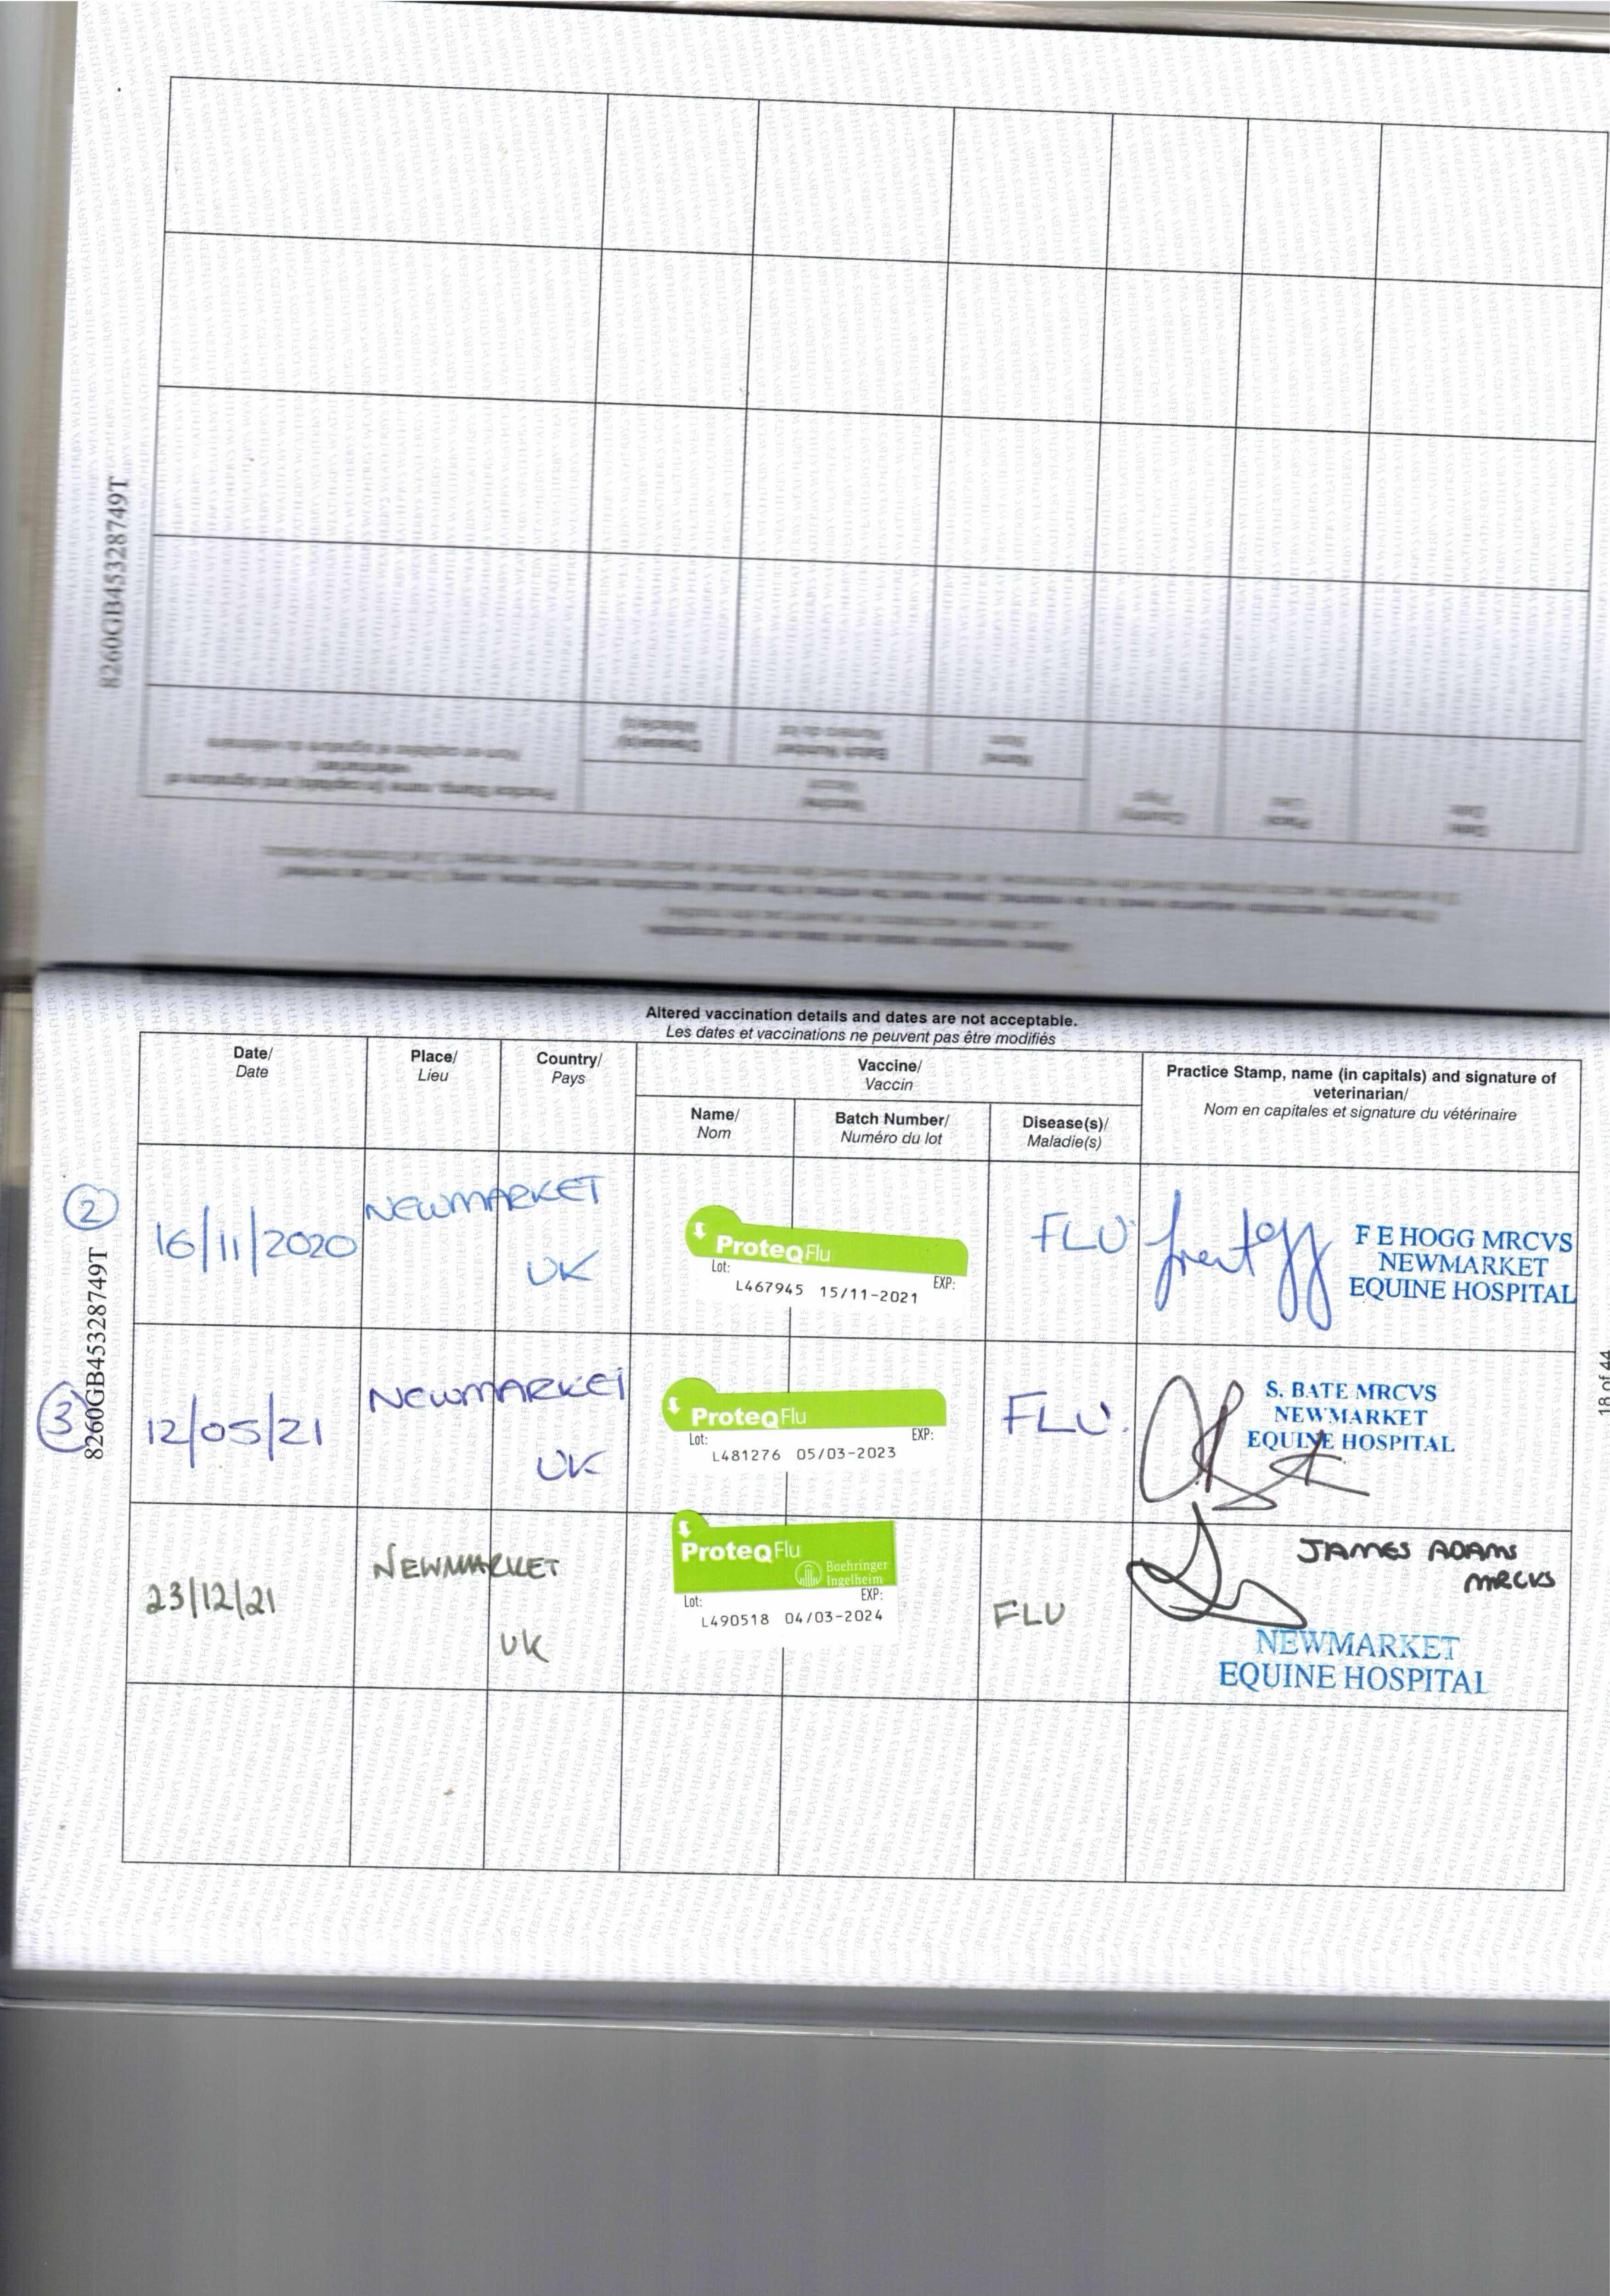 8260GB45328749T
Altered vaccination details and dates are not acceptable.
Les dates et vaccinations ne peuvent pas être modifiés
Date/
Date
Place/
Lieu
Country/
Pays
Vaccine/
Vaccin
Name/
Nom
Batch Number/
Numéro du lot
Disease(s)/
Maladie(s)
Practice Stamp, name (in capitals) and signature of
veterinarian/
Nom en capitales et signature du vétérinaire
2
16/11/2020
NEWMARKET
UK
ProteqFlu
Lot: EXP:
L467945 15/11-2021
FLU
F E HOGG MRCVS
NEWMARKET
EQUINE HOSPITAL
8260GB45328749T
3
12/05/21
NEWMARKET
UK
ProteqFlu
Lot: EXP:
L481276 05/03-2023
FLU.
S. BATE MRCVS
NEWMARKET
EQUINE HOSPITAL
18 of 44
23/12/21
NEWMARKET
UK
ProteqFlu
Boehringer
Ingelheim
Lot: EXP:
L490518 04/03-2024
FLU
JAMES ADAMS
MRCVS
NEWMARKET
EQUINE HOSPITAL